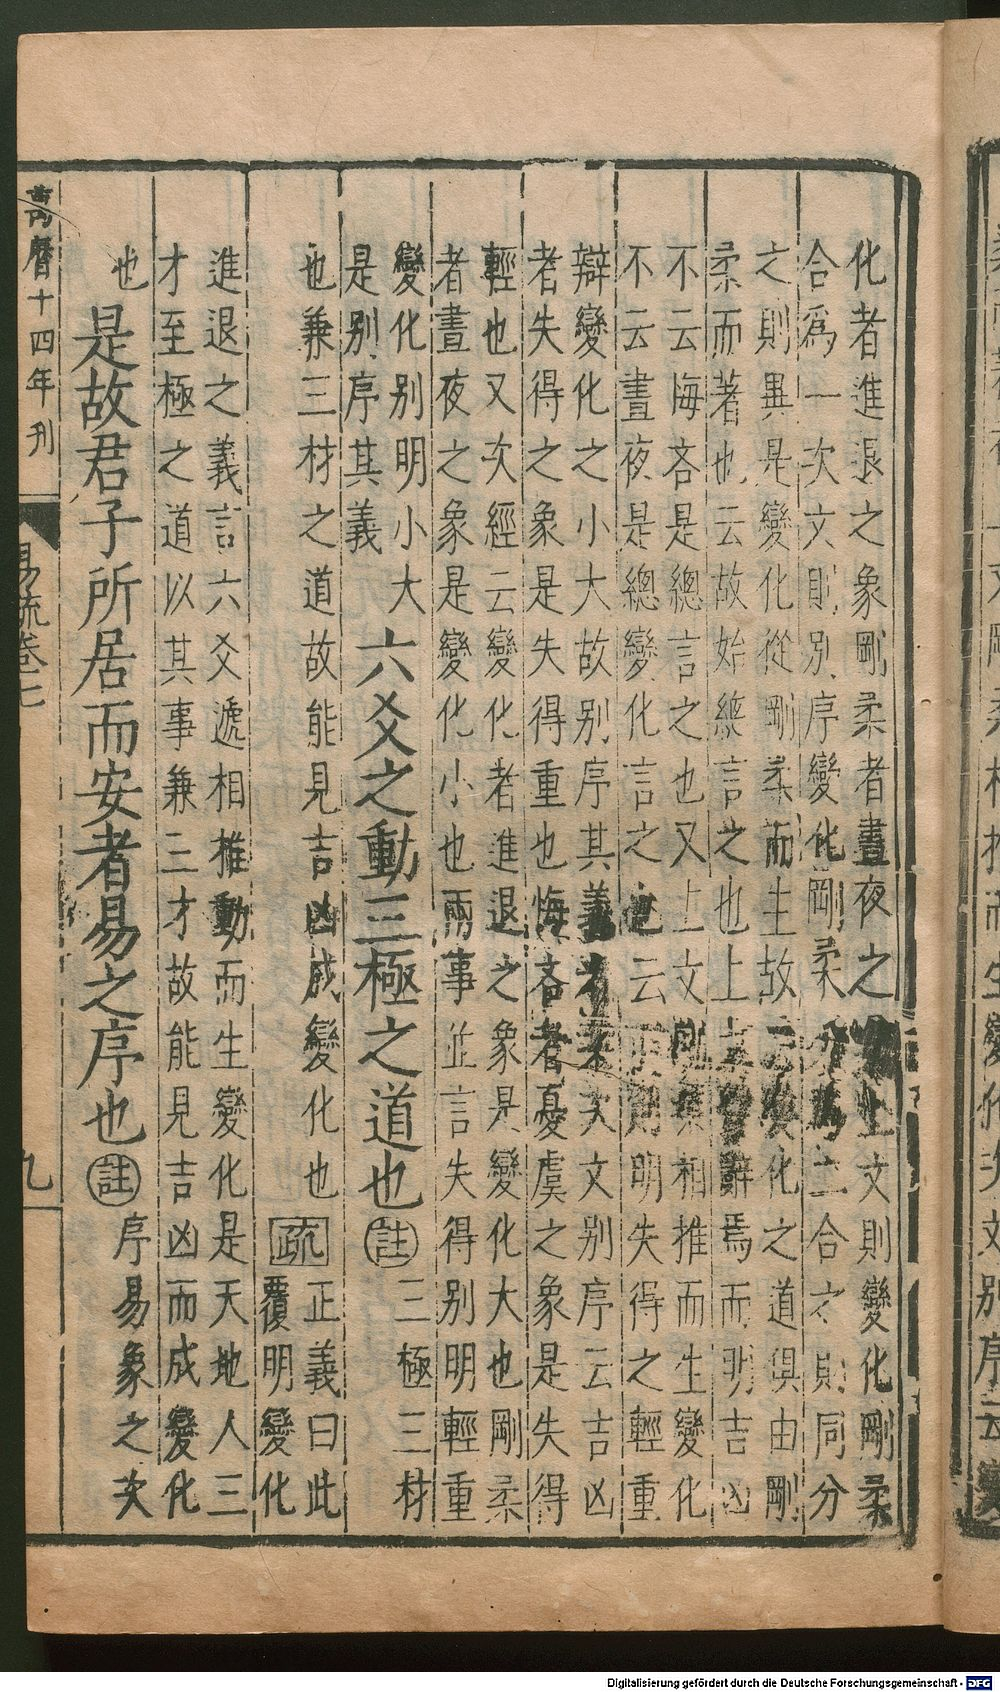 化者進退之象剛柔者晝夜之 上文則變化剛柔
合爲一次文則別序變化剛柔分爲二合之則同分
之則異是變化從剛柔而生故 變化之道俱由剛
柔而著也云故始緫言之也上 辭焉而明吉凶
不云悔吝是總言之也又上文剛柔相推而生變化
不云晝夜是總變化言之也云 明失得之輕重
辯變化之小大故别序其義者 次文别序云吉凶
者失得之象是失得重也悔吝者憂虞之象是失得
輕也又次經云變化者進退之象是變化大也剛柔
者晝夜之象是變化小也兩事並言失得别明輕重
變化别明小大
是别序其義
六爻之動三極之道也註
三極三材
也兼三材之道故能見吉凶成變化也
疏
正義曰此
覆明變化
進退之義言六爻遞相推動而生變化是天地人三
才至極之道以其事兼三才故能見吉凶而成變化
也
是故君子所居而安者易之序也註
序易象之次
萬曆十四年刊
易疏卷七
九
Digitalisierung gefördert durch die Deutsche Forschungsgemeinschaft - DFG